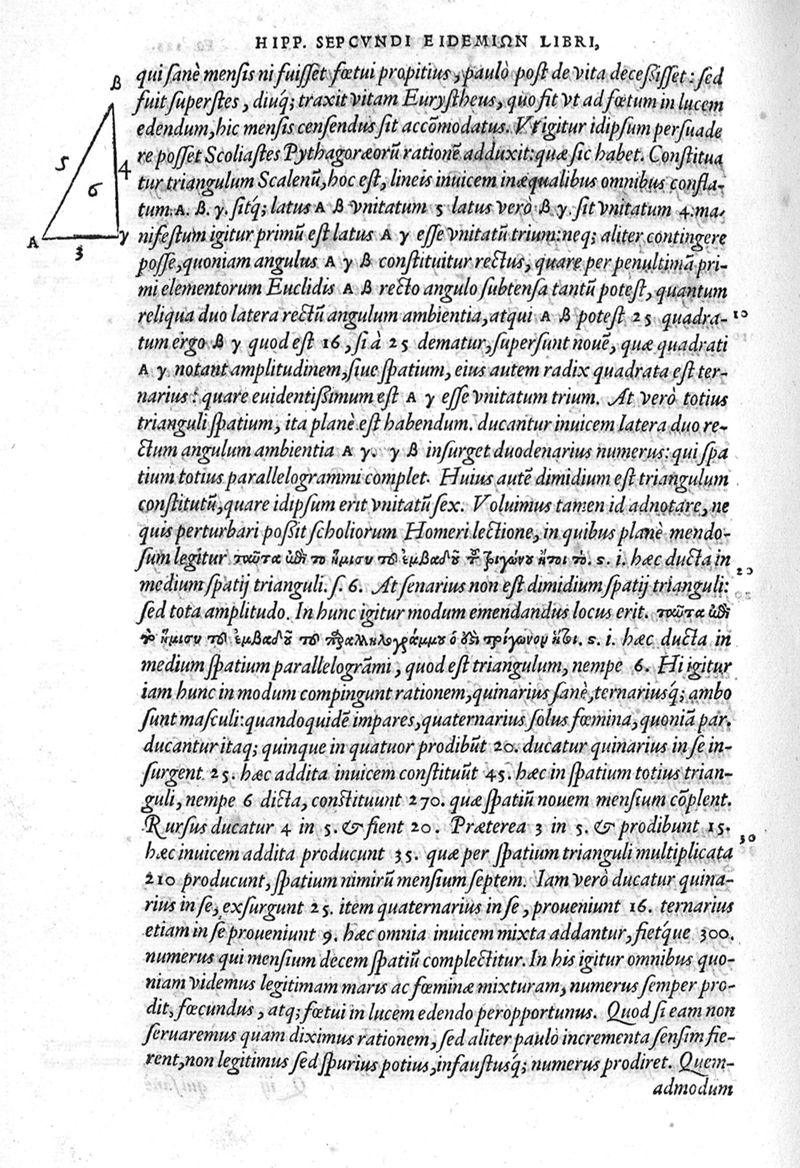 HIPP. SEPCVNDI EIDEMIΩN LIBRI,
qui sanè mensis ni fuisset fœtui propitius, paulò post de vita decessisset: sed
fuit superstes, diuq́; traxit vitam Eurystheus, quo fit vt ad fœtum in lucem
edendum, hic mensis censendus sit accõmodatus. Vt igitur id ipsum persuade
re posset Scoliastes Pythagoræorũ rationẽ adduxit: quæ sic habet. Constitua
tur triangulum Scalenũ, hoc est, lineis inuicem inæqualibus omnibus confla-
tum. A. β. γ. sitq́; latus A β vnitatum 5 latus verò β γ. sit vnitatum 4. ma-
nifestum igitur primũ est latus A γ esse vnitatũ trium: neq; aliter contingere
posse, quoniam angulus A γ β constituitur rectus, quare per penultimã pri-
mi elementorum Euclidis A β recto angulo subtensa tantũ potest, quantum
reliqua duo latera rectũ angulum ambientia, atqui A β potest 25 quadra-
tum ergo β γ quod est 16, si à 25 dematur, supersunt nouẽ, quæ quadrati
A γ notant amplitudinem, siue spatium, eius autem radix quadrata est ter-
narius: quare euidentissimum est A γ esse vnitatum trium. At verò totius
trianguli spatium, ita planè est habendum. ducantur inuicem latera duo re-
ctum angulum ambientia A γ. γ β insurget duodenarius numerus: qui spa
tium totius parallelogrammi complet. Huius autẽ dimidium est triangulum
constitutũ, quare id ipsum erit vnitatũ sex. Voluimus tamen id adnotare, ne
quis perturbari possit scholiorum Homeri lectione, in quibus planè mendo-
sum legitur ταῦτα ἐπὶ το ἥμισυ τοῦ ἐμβαδοῦ τοῦ τριγώνου ἤτοι τὸ. s. i. hæc ducta in
medium spatij trianguli. s. 6. At senarius non est dimidium spatij trianguli:
sed tota amplitudo. In hunc igitur modum emendandus locus erit. ταῦτα ἐπὶ
τὸ ἥμισυ τοῦ ἐμβαδοῦ τοῦ παραλληλογράμμου ὅ ἐστι τρίγωνον ἤτοι. s. i. hæc ducta in
medium spatium parallelogrãmi, quod est triangulum, nempe 6. Hi igitur
iam hunc in modum compingunt rationem, quinarius sanè, ternariusq́; ambo
sunt masculi: quandoquidẽ impares, quaternarius solus fœmina, quoniã par.
ducantur itaq; quinque in quatuor prodibũt 20. ducatur quinarius in se in-
surgent 25. hæc addita inuicem constituũt 45. hæc in spatium totius trian-
guli, nempe 6 dicta, constituunt 270. quæ spatiũ nouem mensium cõplent.
Rursus ducatur 4 in 5. & fient 20. Præterea 3 in 5. & prodibunt 15.
hæc inuicem addita producunt 35. quæ per spatium trianguli multiplicata
210 producunt, spatium nimirũ mensium septem. Iam verò ducatur quina-
rius in se, exsurgunt 25. item quaternarius in se, proueniunt 16. ternarius
etiam in se proueniunt 9. hæc omnia inuicem mixta addantur, fietq́ue 300.
numerus qui mensium decem spatiũ complectitur. In his igitur omnibus quo-
niam videmus legitimam maris ac fœminæ mixturam, numerus semper pro-
dit, fœcundus, atq; fœtui in lucem edendo peropportunus. Quod si eam non
seruaremus quam diximus rationem, sed aliter paulò incrementa sensim fie-
rent, non legitimus sed spurius potius, infaustusq́; numerus prodiret. Quem-
admodum
β
5
4
6
A
γ
3
10
20
30